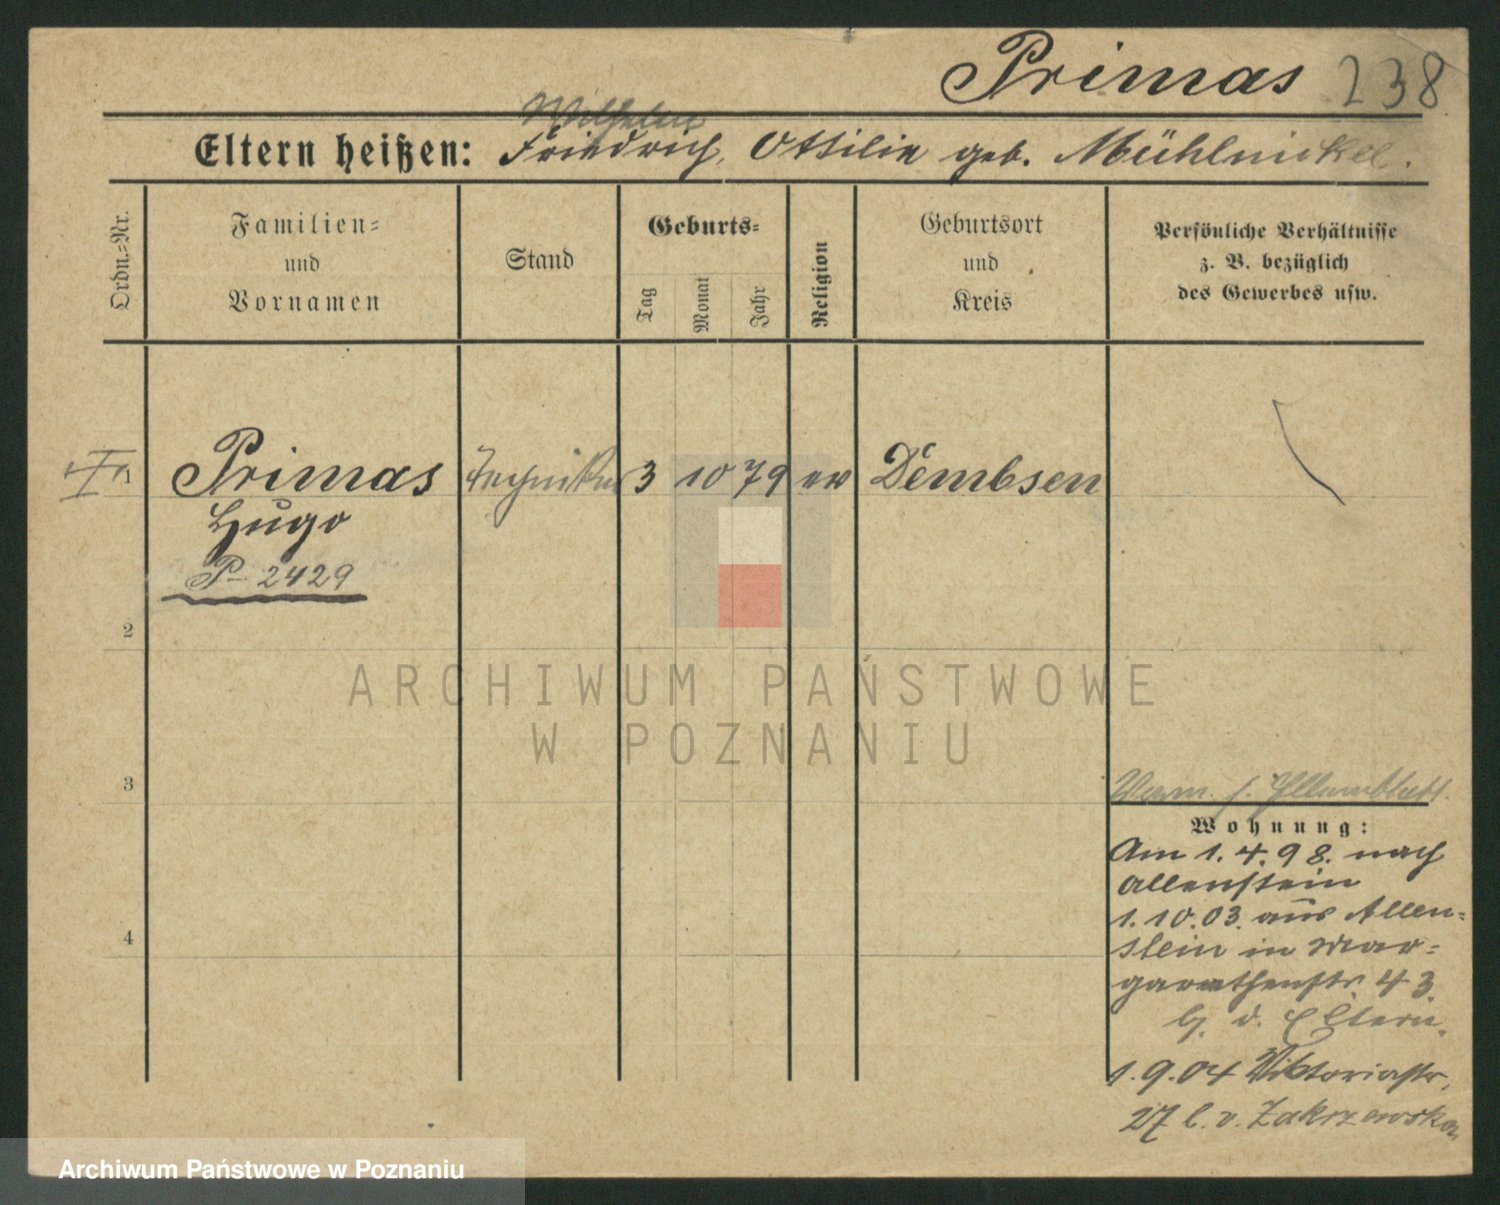 Primas 238
Wilhelm
Eltern heißen: Friedrich, Ottilie geb. Mühlnickel.
Ordn.-Nr.
Familien-
und
Vornamen
Stand
Geburts-
Tag
Monat
Jahr
Religion
Geburtsort
und
Kreis
Persönliche Verhältnisse
z. B. bezüglich
des Gewerbes usw.
1 Primas Techniker 3 10 79 ev Dembsen
Hugo
P 2429
2
ARCHIWUM PAŃSTWOWE
W POZNANIU
3
Verm. s.
Wohnung:
Am 1.4.98. nach
Allenstein
1.10.03. aus Allen-
stein in Mar-
garethenstr. 43.
b. d. Eltern.
4
1.9.04 Viktoriastr.
27 b. v. Zakrzewska
Archiwum Państwowe w Poznaniu